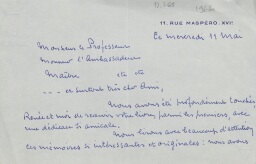 11, RUE MASPÉRO, XVIe
Ce mercredi 11 Mai
Monsieur le Professeur
Monsieur l'Ambassadeur
Maître
.... et surtout très cher Ami,
Nous avons été profondément touchés,
Renée et moi de recevoir votre livre parmi les premiers, avec
une dédicace si amicale.
Nous lirons avec beaucoup d'attention
ces mémoires si intéressantes et originales : nous avons